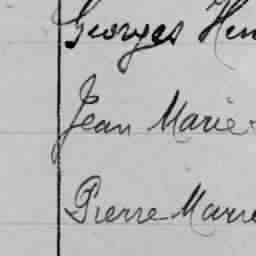 Georges Hen
Jean Marie
Pierre Marie